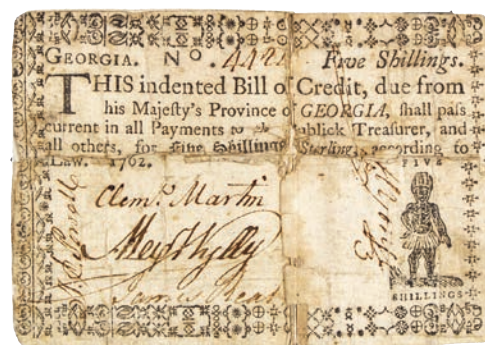 GEORGIA. No. Five Shillings.
THIS indented Bill of Credit, due from
his Majeſty's Province of GEORGIA, ſhall paſs
current in all Payments to the Publick Treaſurer, and
all others, for Five Shillings Sterling, according to
Law. 1762.
FIVE
Clemt. Martin
James
SHILLINGS